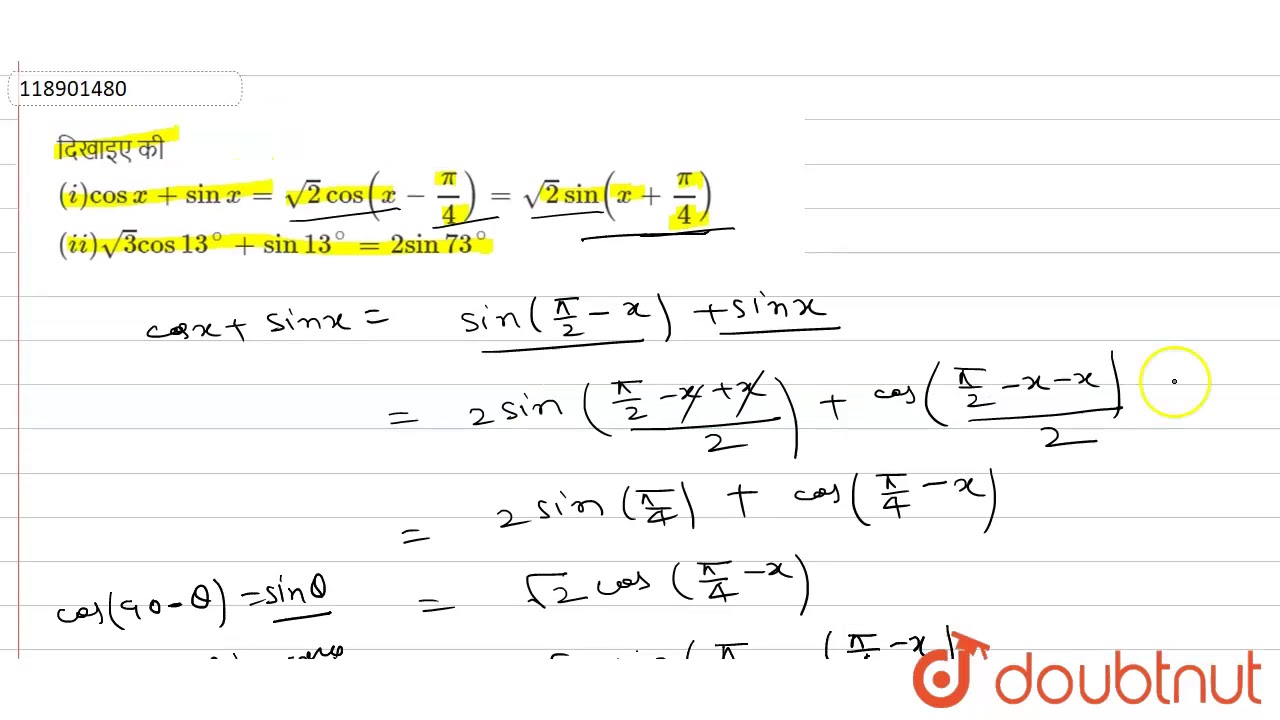 118901480
दिखाइए की
(i)cos x + sin x = √2 cos(x − π/4) = √2 sin(x + π/4)
(ii)√3cos 13° + sin 13° = 2sin 73°
cosx + sinx = sin(π/2 − x) + sinx
= 2 sin((π/2 − x + x)/2) + cos((π/2 − x − x)/2)
= 2 sin(π/4) + cos(π/4 − x)
cos(90 − θ) = sinθ = √2 cos(π/4 − x)
doubtnut